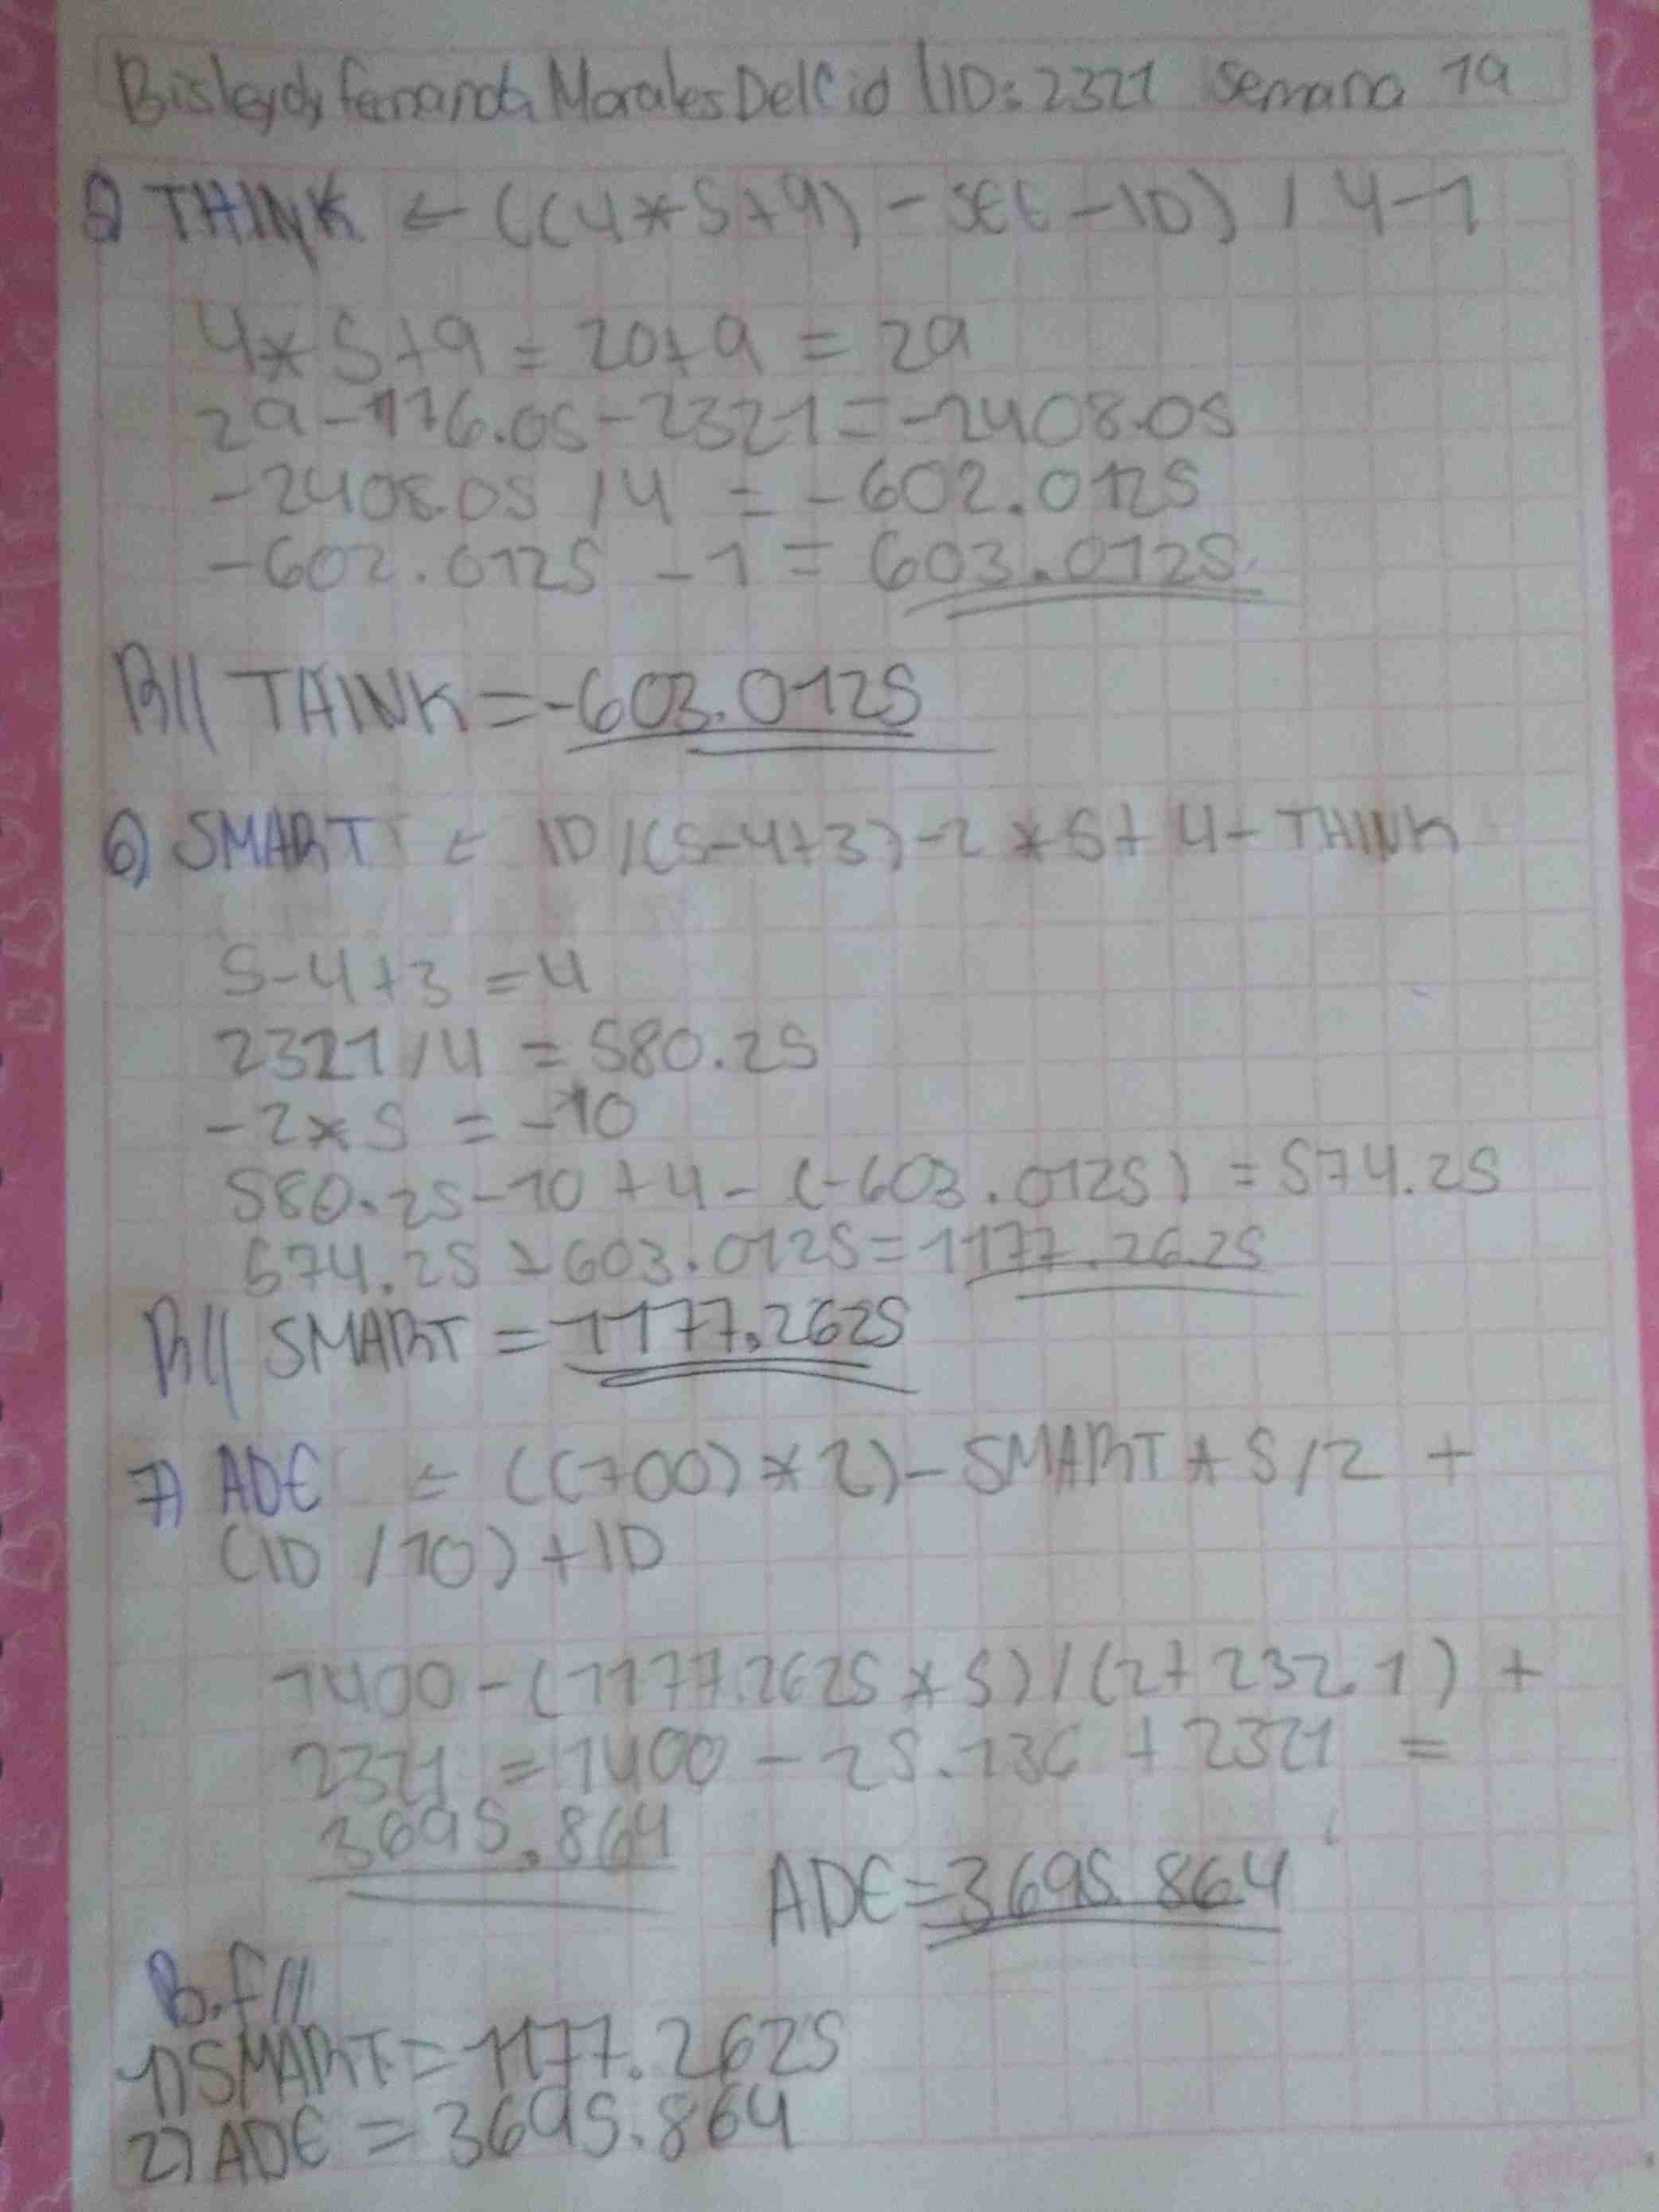 Bisleydy Fernanda Morales Del Cid ID: 2321 Semana 19
5) THINK ← ((4*5+9) - SEE - ID) / 4-1
4*5+9 = 20+9 = 29
29-116.05-2321=-2408.05
-2408.05 /4 = -602.0125
-602.0125 -1 = 603.0125
R// THINK =-603.0125
6) SMART ← ID/(5-4+3)-2*5+4-THINK
5-4+3 =4
2321/4 = 580.25
-2*5 = -10
580.25-10+4-(-603.0125) = 574.25
574.25+603.0125=1177.2625
R// SMART =1177.2625
7) ADE ← ((700)*2)-SMART*5/2 +
(ID /10)+ID
1400-(1177.2625*5)/(2+232.1) +
2321 =1400 - 25.136 + 2321 =
3695.864
ADE=3695.864
R.F//
1)SMART=1177.2625
2)ADE = 3695.864